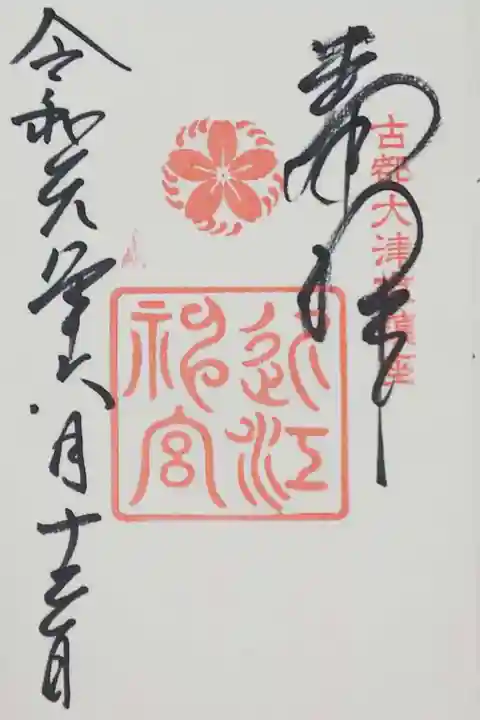 奉拝
古都大津
鎮座
近江
神宮
令和元年六月十
日